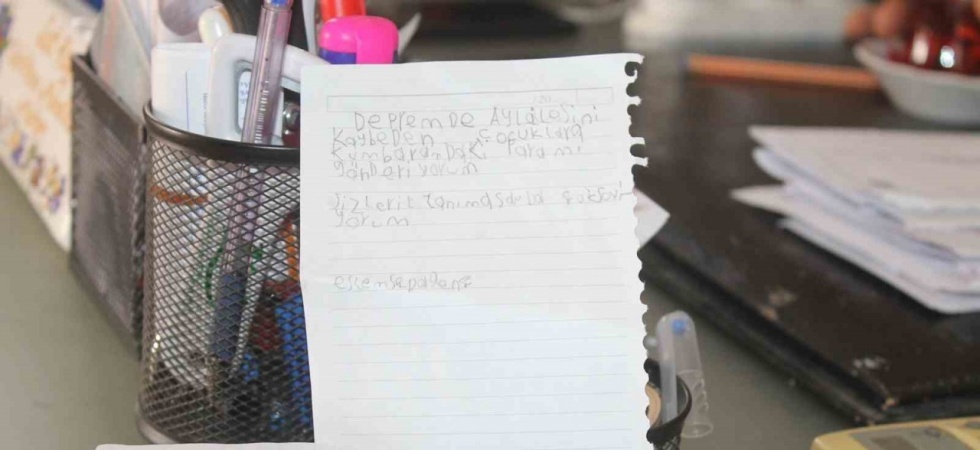 DEPREMDE AYLALESiNi
KAYBEDEN ÇOCUKLARA
KUMBARAMDAKi PARAMI
göNDERiYORUM
Sizleri Tanımasamda Seviyi
yorum